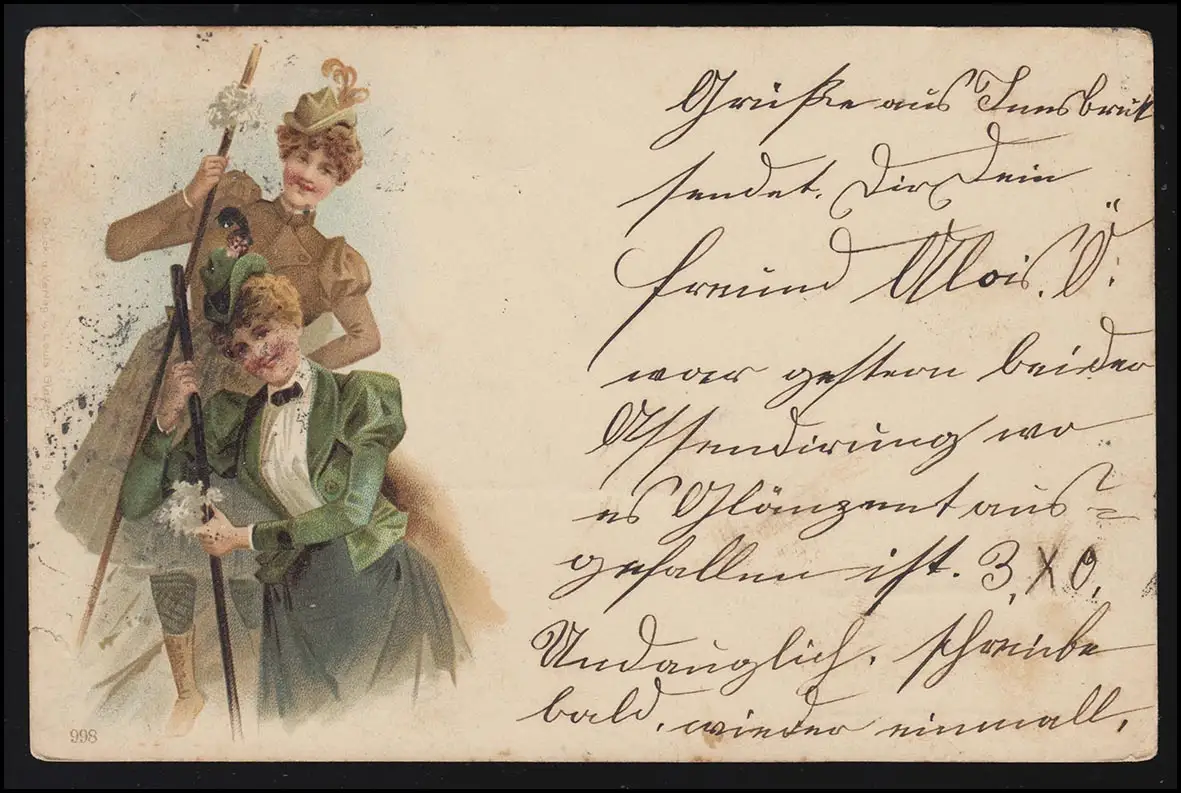 Grüße aus Innsbruk
sendet. Dir Dein
freund Alois. Ö.
war gestern bei der
Assendirung wo
es Glänzent aus=
gefallen ist. 3 X 0,
Undauglich. schreibe
bald. wieder einmall.
Druck u. Verlag v. Louis
998